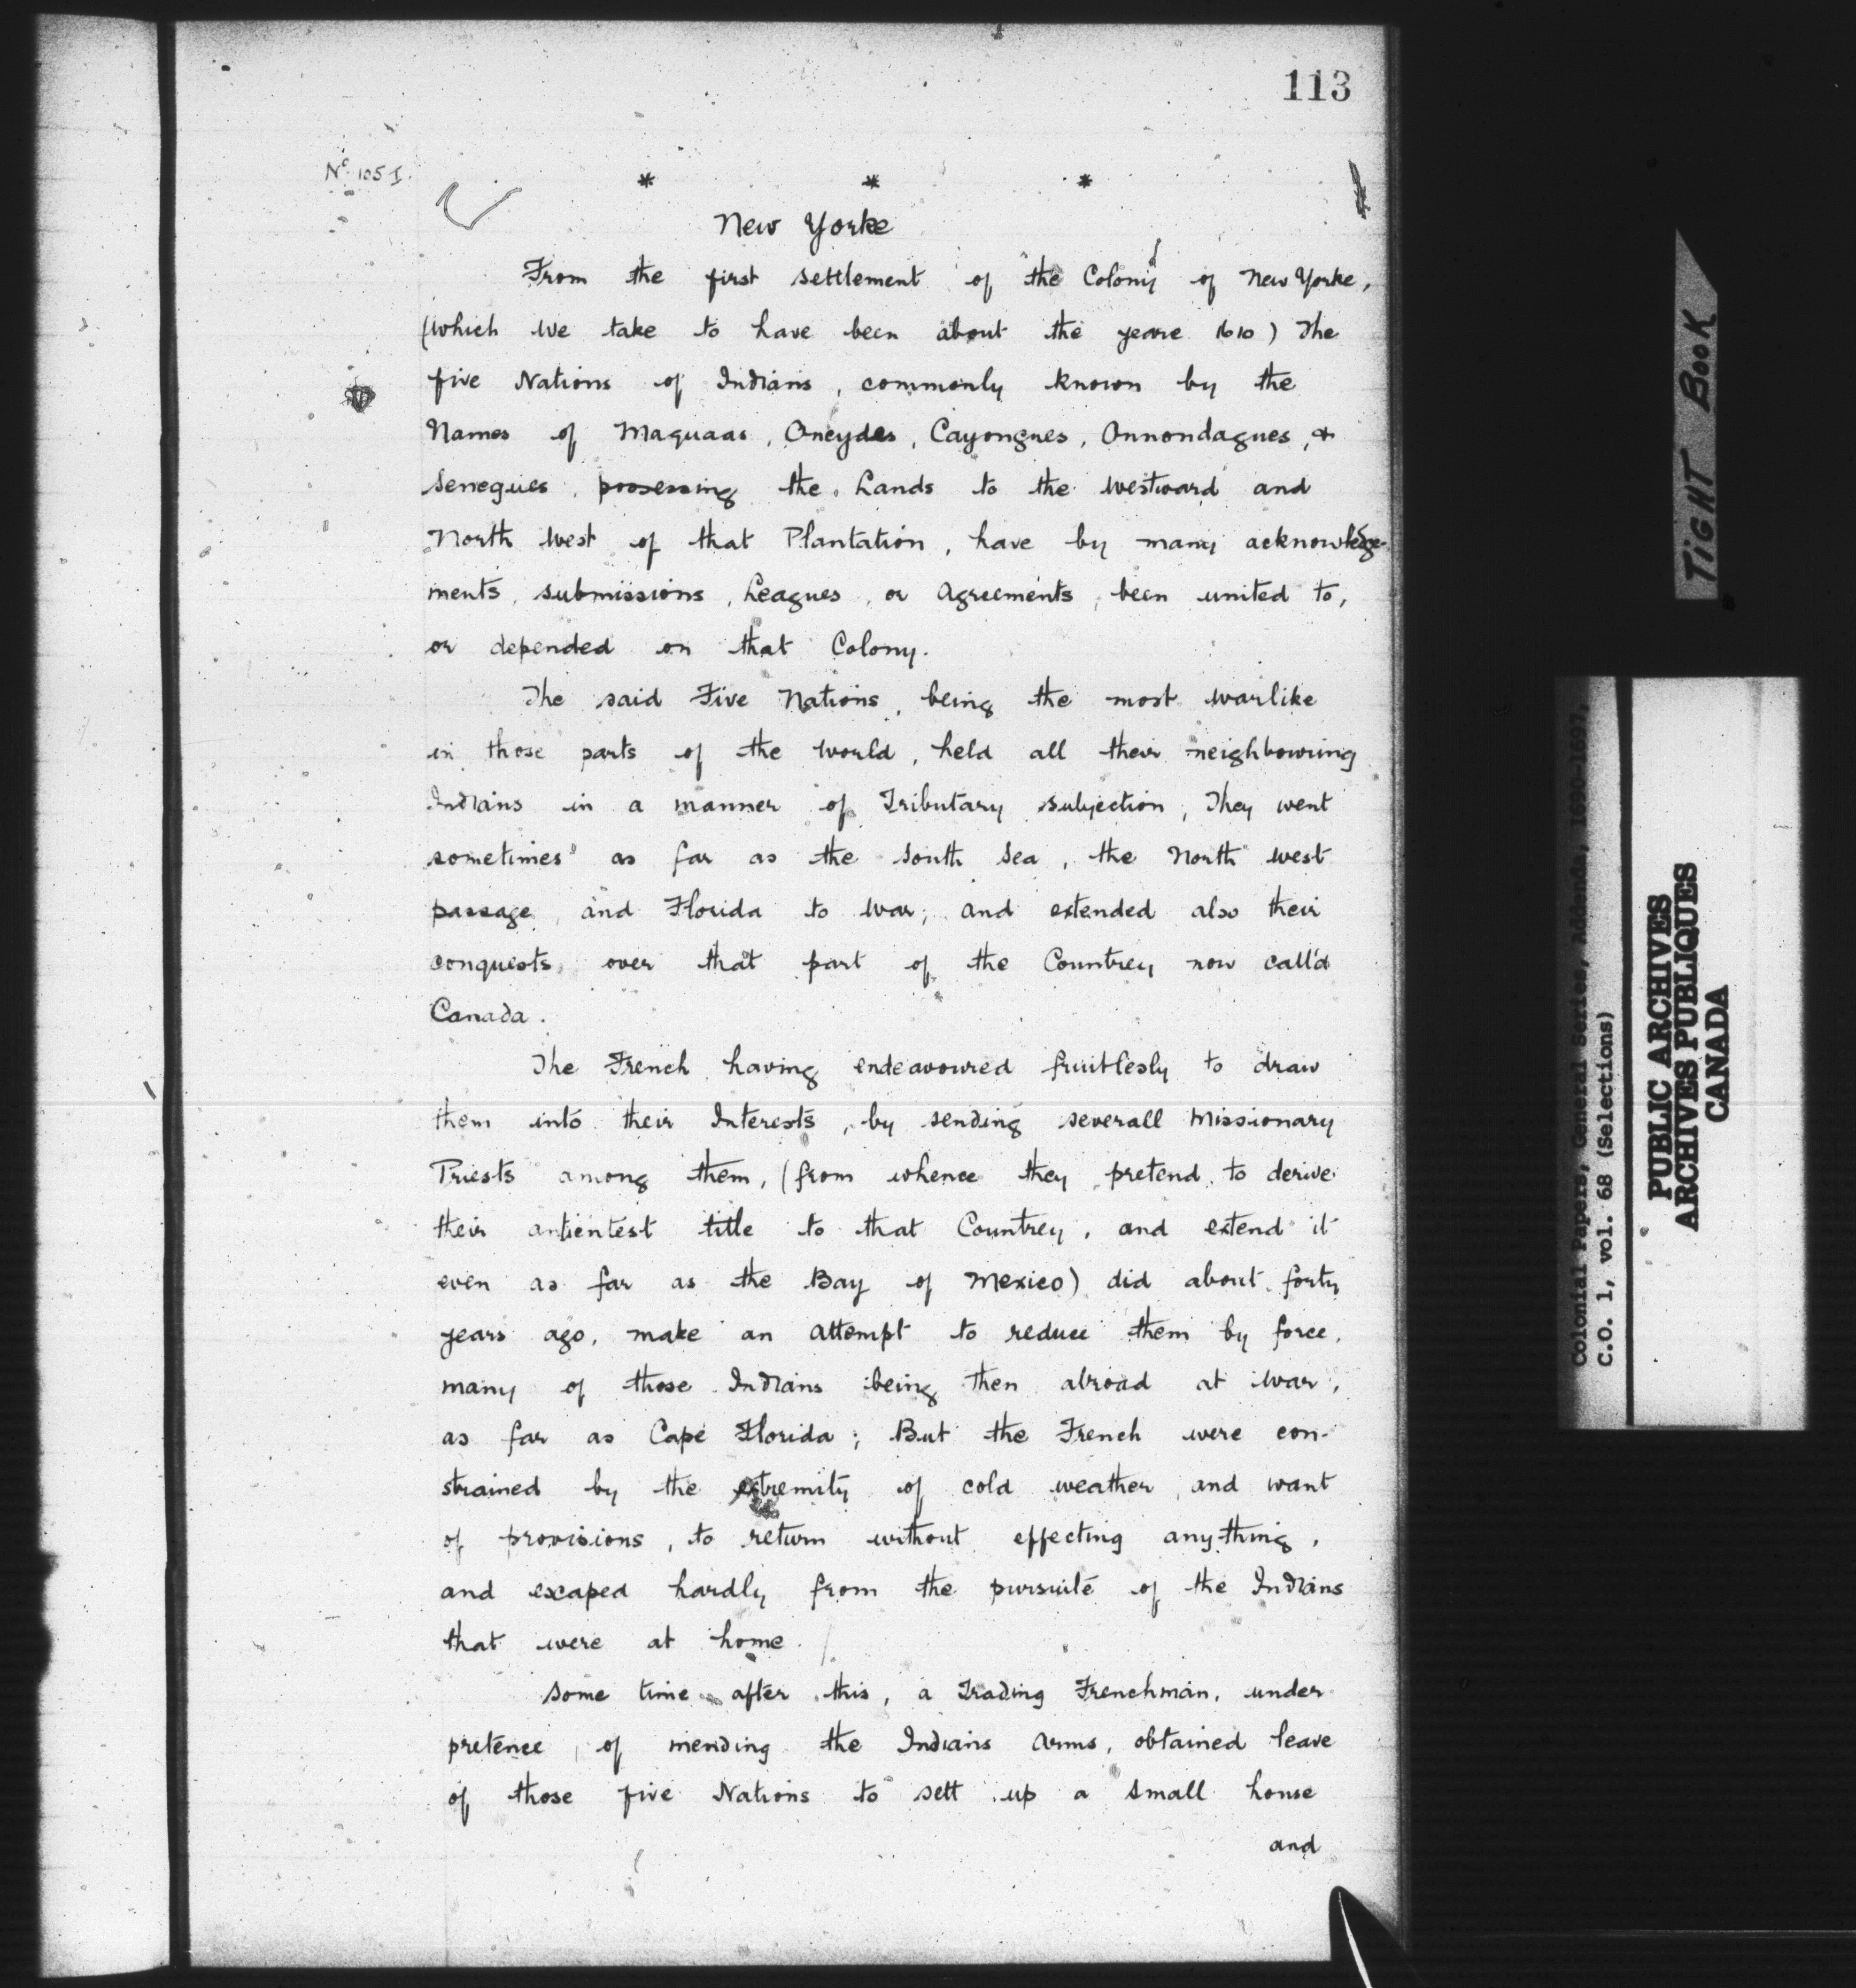 113
No 105 I.
* * *
New Yorke
From the first settlement of the Colony of New Yorke,
(which we take to have been about the yeare 1610) The
five Nations of Indians, commonly known by the
Names of Maquaas, Oneydes, Cayongues, Onnondagues, &
Senegues, possessing the Lands to the westward and
North west of that Plantation, have by many acknowledge-
ments, submissions, Leagues, or Agreements, been united to,
or depended on that Colony.
The said Five Nations, being the most warlike
in those parts of the world, held all their neighbouring
Indians in a manner of Tributary subjection, They went
sometimes as far as the South Sea, the North west
passage, and Florida to war; and extended also their
conquests, over that part of the Countrey now call'd
Canada.
The French having endeavoured fruitlesly to draw
them into their Interests, by sending severall Missionary
Priests among them, (from whence they pretend to derive
their antientest title to that Countrey, and extend it
even as far as the Bay of Mexico) did about forty
years ago, make an attempt to reduce them by force,
many of those Indians being then abroad at war,
as far as Cape Florida; But the French were con-
strained by the extremity of cold weather, and want
of provisions, to return without effecting anything,
and escaped hardly from the pursuite of the Indians
that were at home.
Some time after this, a Trading Frenchman, under
pretence, of mending the Indians Arms, obtained leave
of those five Nations to sett up a small house
and
TIGHT BOOK
Colonial Papers, General Series, Addenda, 1690-1697,
C.O. 1, vol. 68 (Selections)
PUBLIC ARCHIVES
ARCHIVES PUBLIQUES
CANADA